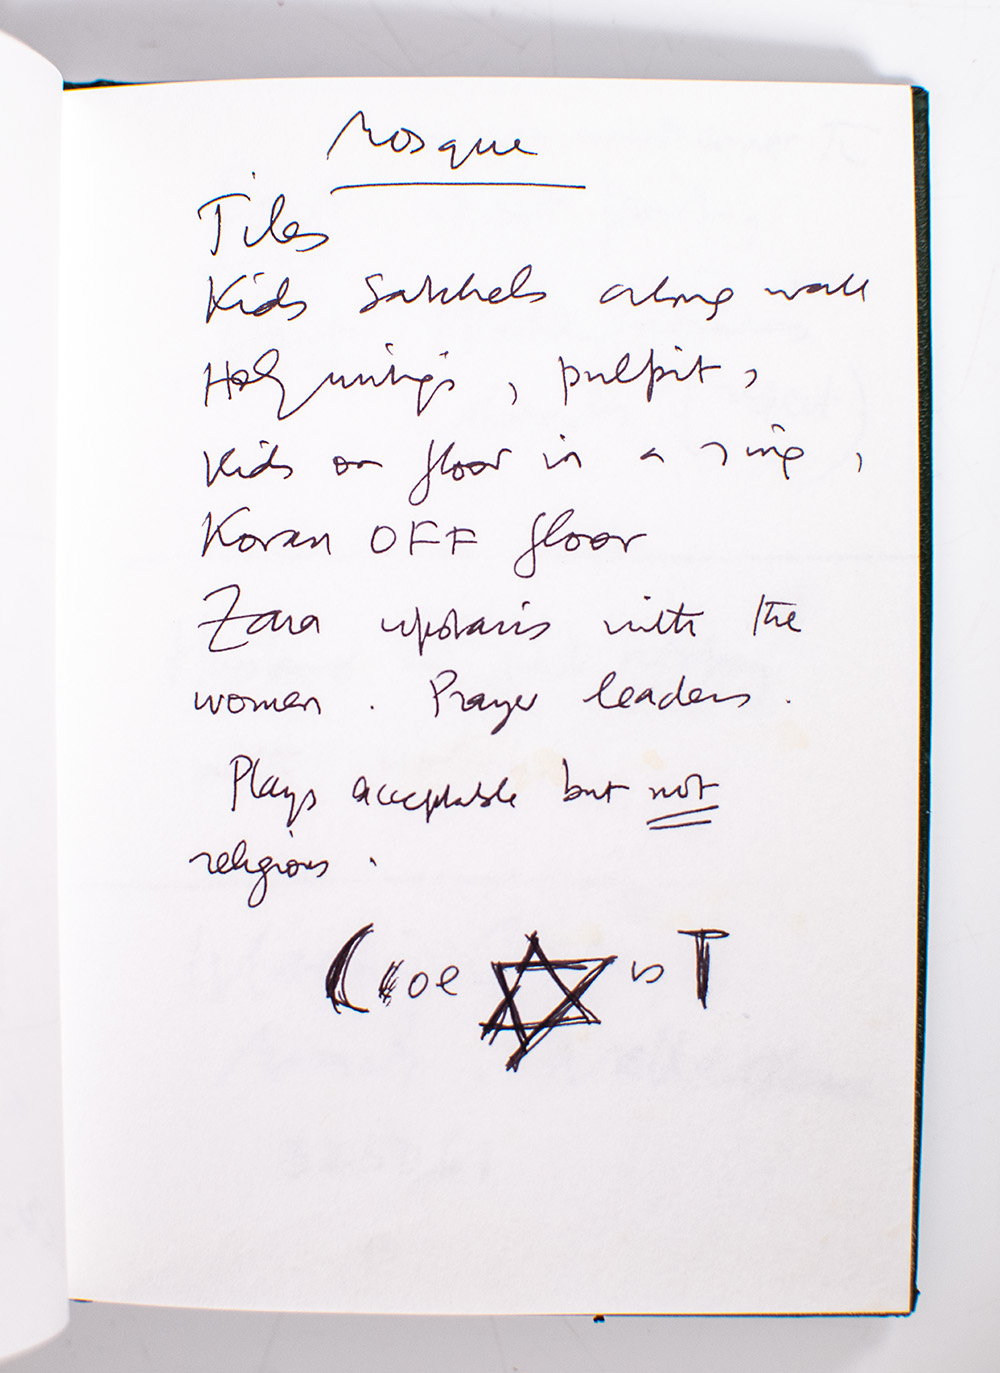 Mosque
Tiles
Kids satchels along wall
Holy writings, pulpit,
Kids on floor in a ring,
Koran OFF floor
Zara upstairs with the
women. Prayer leaders.
Plays acceptable but not
religious.
Coe✡isT